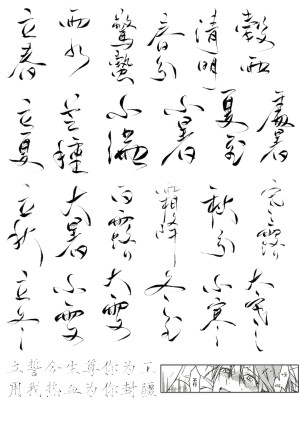 立春 雨水 驚蟄 春分 清明 穀雨
立夏 芒種 小满 小暑 夏至 處暑
立秋 大暑 白露 霜降 秋分 寒露
立冬 小雪 大雪 冬至 小寒 大寒
立誓今生尊你为王
用我热血为你封疆